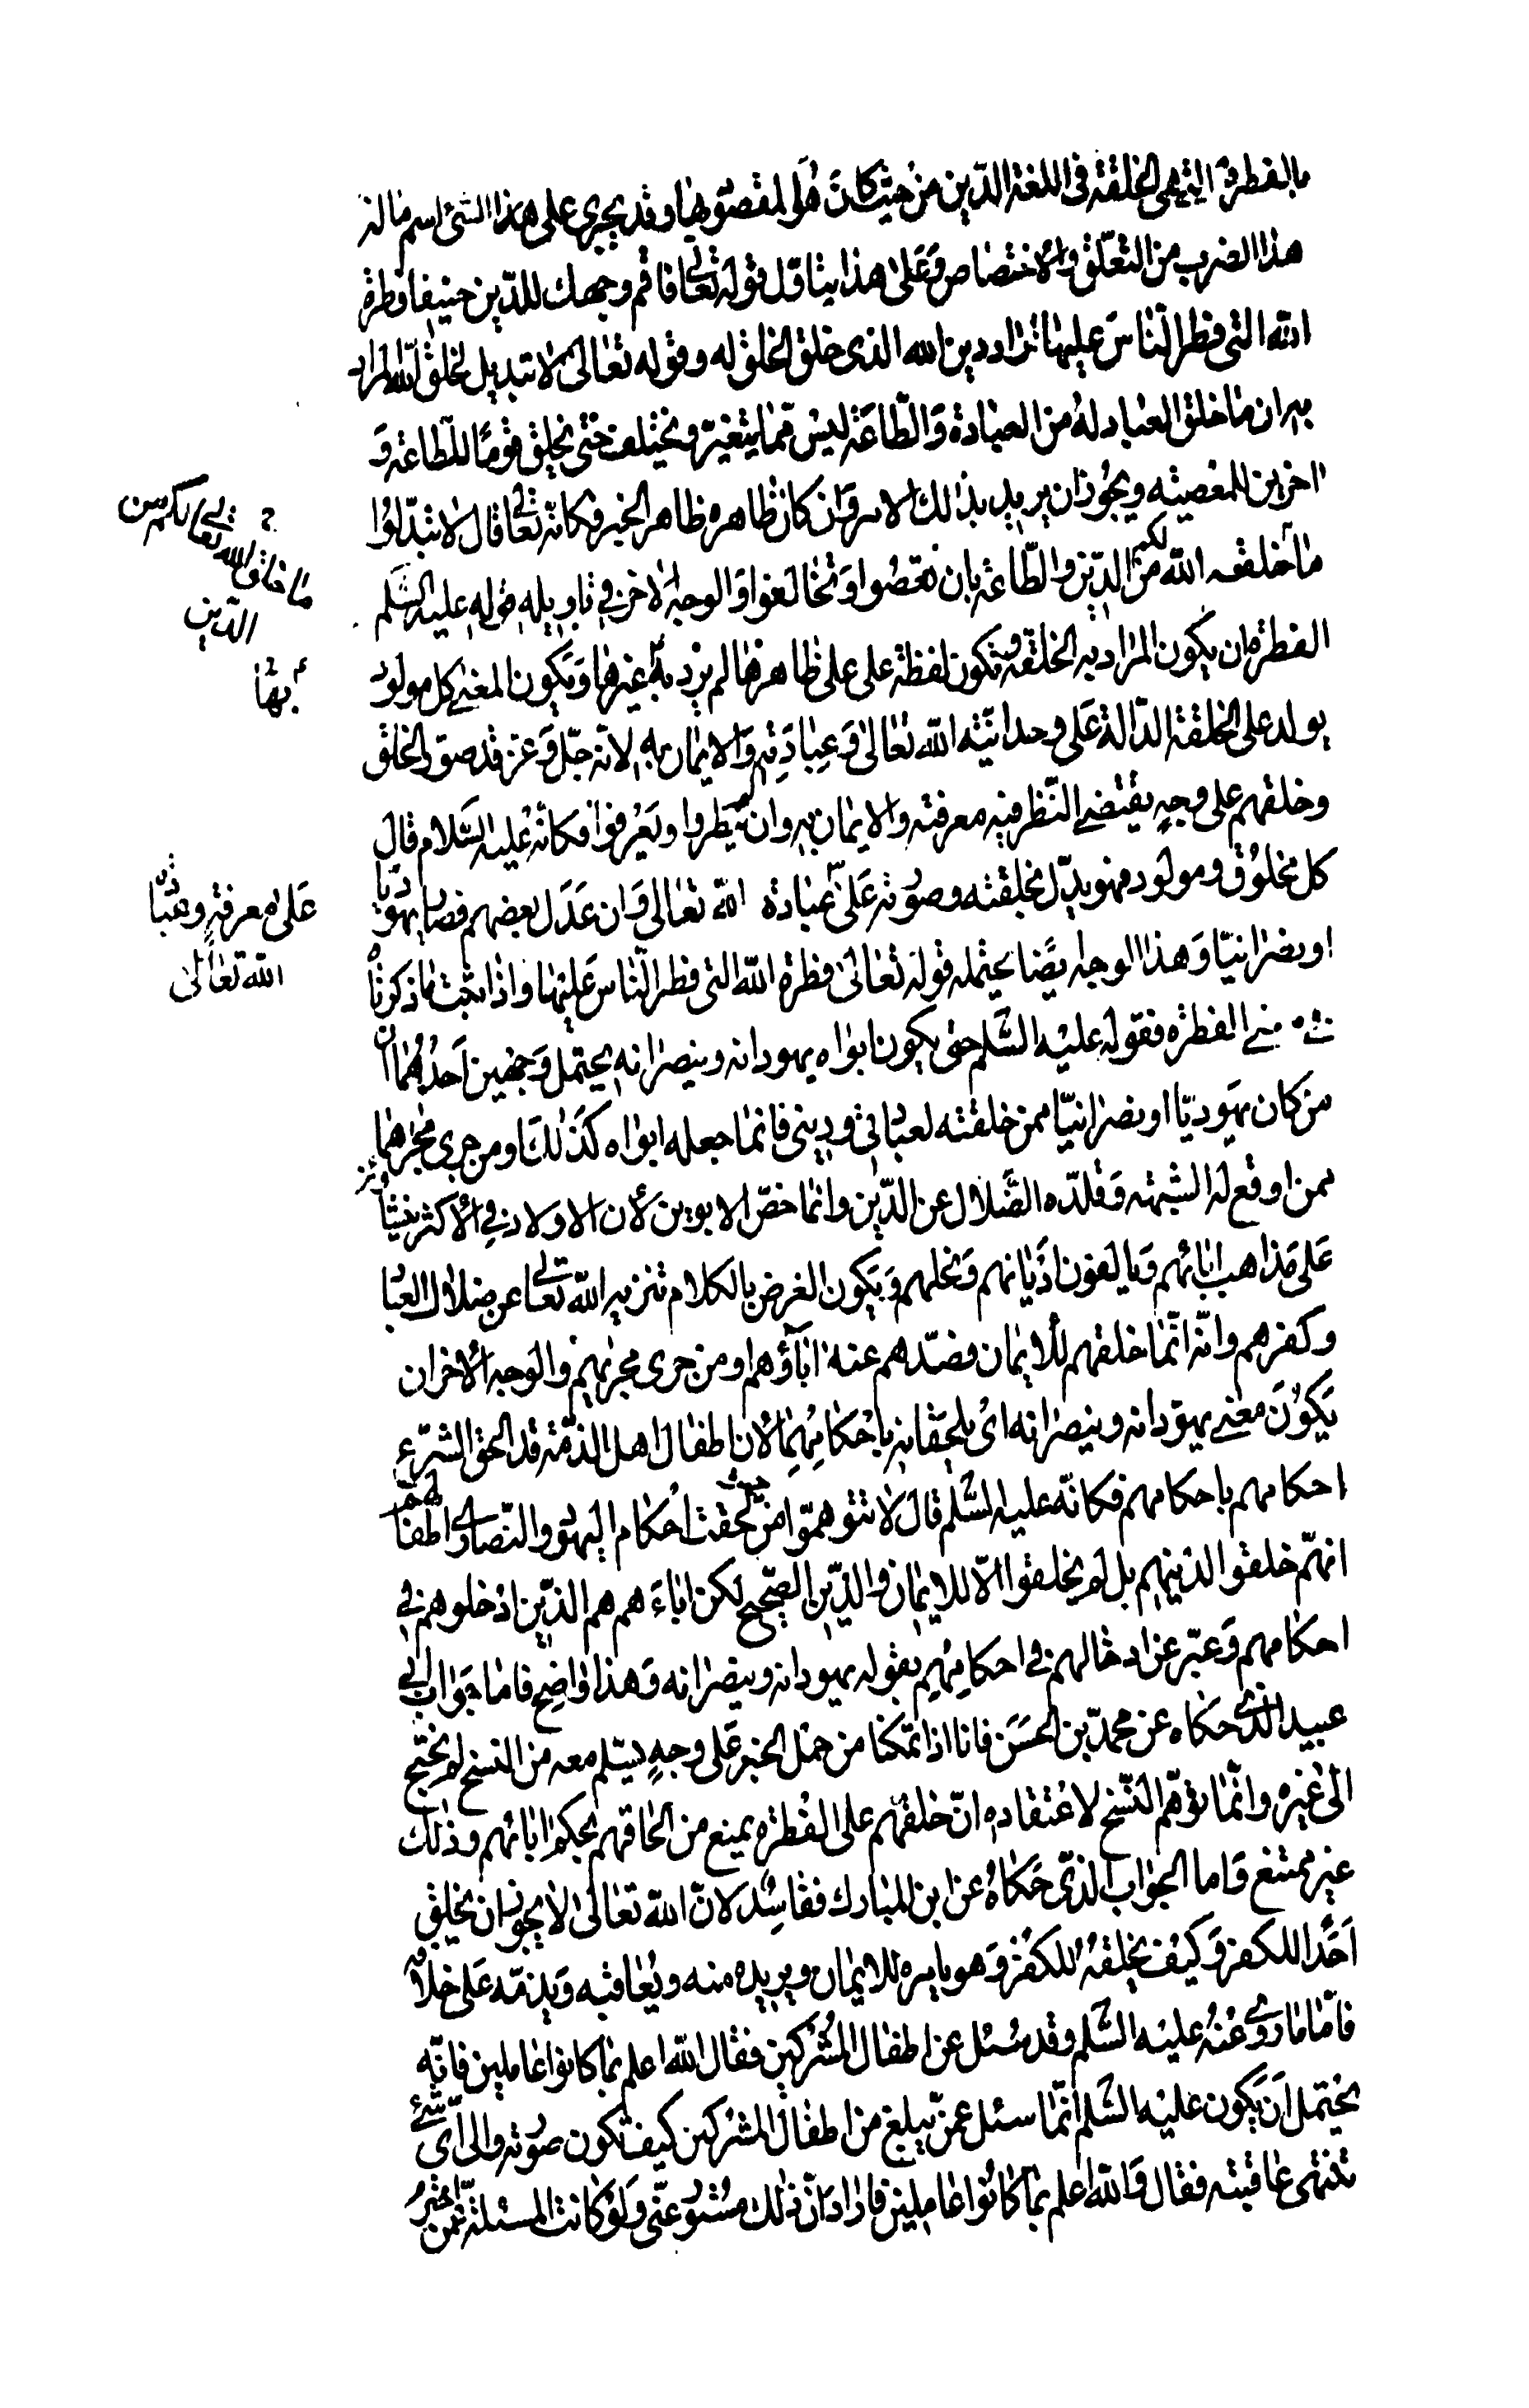 بالفطرة التي هي الخلقة في اللغة الدّين من حيث كان هُوَ المقصود بها وقد يجرى على هذا الشئ اسم ماله
هذا الضرب من التعلّق والاختصاص وَعَلىٰ هذا يتاوّل قوله تعالى فاقم وجهك للدّين حنيفا فطرة
اللّه التي فطر النّاسَ عليها اراد دين اللّه الذى خلق الخلق له وقوله تعٰالىٰ لا تبديل لخلق اللّه المراد
به ان ما خلق العباد لهُ من العبٰادة وَالطّاعَة ليس ممّا يتغيّر ويختلف حتى يخلق قومًا للطّاعة وَ
اخرين للمعصية ويجُوز ان يريد بذالك الامر وَان كان ظاهره ظاهر الخبر فكانّه تعالى قال لا تبدّلوُا
مٰا خلقه اللّه لكم منَ الدّين والطّاعة بان تعصُوا وَتخٰالفوا وَالوجه الاخر في تاويله قوله عليه السّلم
الفطرة ان يكون المرٰاد به الخلقة وتكون لفظة على على ظٰاهرهٰا لم يرد بهٰا غيرهٰا وَيكون المعنى كل مولود
يولد على الخلقة الدّالة عَلى وحدانيّة اللّه تعٰالىٰ وَعِبٰادَتِه وَالايمٰان بهِ لانّه جلّ وَعَز قد صوّر الخلق
وخلقهم على وجهٍ يقتضى النّظر فيه معرفته والايمٰان به وان لم ينظروا ويَعْرفوا فكانّه عَليه السّلام قالَ
كل مخلوُق ومولود فهو يدلّ بخلقته وصوُرته عَلىٰ عبٰادة اللّه تعٰالى وَان عَدَل بعضهم فصار يهوديّا
او نصرٰانيّا وَهذا الوجه ايضًا يحتمله قوله تعٰالىٰ فطرة اللّه التى فطر النّاس عَليهٰا واذا ثبت مٰا ذكرنٰاه
في معنى الفطرة فقوله عليْه السَّلم حتى يكون ابوٰاه يهودانه وينصرٰانهِ يحتمل وَجهين اَحدُهُمٰا انّ
من كان يهَوديّا او نصرٰانيّا ممن خلقته لعبٰادتى ودينى فانمٰا جعله ابوٰاه كَذٰلكَ او من جرى مجرٰاهمٰا
ممن اوقع له الشبهة وَقلّده الضّلال عن الدّين وانمٰا خصّ الابوين لأن الاولاد في الأكثر ينشٰا ون
عَلى مَذاهب اٰبٰائهم وَيالفون اَديٰانهم وَنحلهم وَيَكون الغرض بالكلام تنزيه اللّه تعالى عن ضلاٰل العبٰا
وكفرهم وانّه انّمٰا خلقهم للأيمٰان فصدّهم عنه اٰبٰاؤهم او من جرى مجرٰيهم والوجه الأخر ان
يَكوُنَ معنى يهوّدانه وينصرٰانه اىْ يلحقانه باَحْكامِهمٰا لاُن اطفٰالَ اهل الذمّة قد الحق الشّرع
احكامهم باحكامهم فكانّه عليه السَّلم قٰالَ لا تتوهمّوا من حيث لَحقت اَحْكام اليَهود والنّصٰارى اطفالهم
انهّم خلقوا لدينهم بل لم يخلقوا الاّ للايمٰان والدّين الصّحيح لكن اٰبٰاءَهم هم الذين اَدْخلوهم في
احكٰامهم وَعبّر عن ادخالهم في احكامِهِم بقوله يهودانه وينصرٰانه وَهذا وٰاضِح فاما جوَاب ابى
عبيد الذى حكٰاه عن محمدّ بن الحسَن فانا اذا تمكّنا من حمْل الخبر عَلى وجهٍ يسلم معه من النسخ لم نحتج
الىٰ غيره وانّمٰا توهّم النّسخ لاعْتقاده انّ خلقهُم على الفْطرة يمنع من الحٰاقهم بحكم اٰبٰائهم وذٰلك
غير ممتنع وَاما الجوٰاب الذّى حَكٰاهُ عن ابن المبٰارك ففٰاسِد لانّ اللّه تعٰالىٰ لاٰ يجوز ان يخلق
اَحَدًا للكفر وَكيف يخلقهُ للكفر وَهو يامره للايمٰان ويريده منه ويُعٰاقبه وَيذمّه عَلى خلاٰفه
فامّا مٰا روى عَنْهُ عليْه السَّلم وقد سُئل عن اطفٰال المُشْركين فقٰال اللّه اعلم بمٰا كانوا عٰاملين فانّه
يحْتمل اَن يَكون عليْه السَّلم انّمٰا سئل عمن يبلغ من اطفٰال المشركين كيف تكون صُورته والى اىّ شئ
تنتهى عٰاقبته فقال وَاللّه اعلم بمٰا كانُوا عٰاملين فارٰاد انّ ذٰلك مسْتور عنّى وَلو كانت المسئلة عمّن اخترم
ما خلق اللّه تعالى لكم من
الدّين
بهٰا
عَلى معرفة وعبٰادة
اللّه تعٰالىٰ